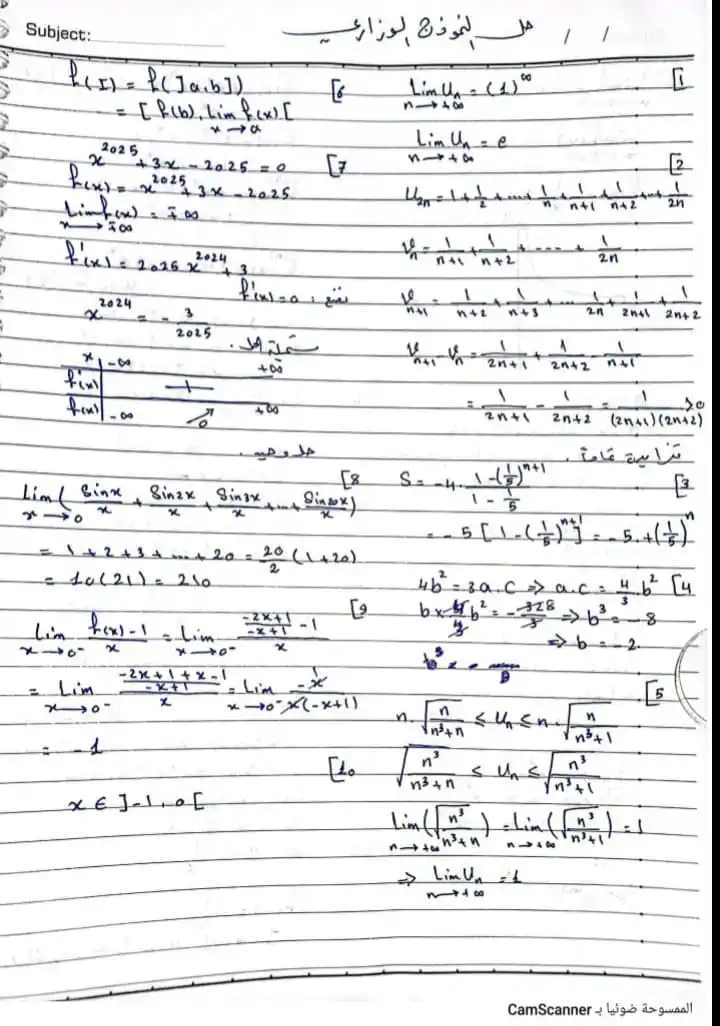 Subject:
حل النموذج الوزاري / /
1]
Lim Uₙ = (1)^∞
n→+∞
Lim Uₙ = e
n→+∞
2]
U₂ₙ = 1 + 1/2 + ... + 1/n + 1/(n+1) + 1/(n+2) + ... + 1/2n
Vₙ = 1/(n+1) + 1/(n+2) + ... + 1/2n
Vₙ₊₁ = 1/(n+2) + 1/(n+3) + ... 1/2n + 1/(2n+1) + 1/(2n+2)
Vₙ₊₁ - Vₙ = 1/(2n+1) + 1/(2n+2) - 1/(n+1)
= 1/(2n+1) - 1/(2n+2) = 1/((2n+1)(2n+2)) > 0
تزايدية تماماً.
3]
S = -4 · (1-(1/5)^(n+1))/(1 - 1/5)
= -5 [1-(1/5)^(n+1)] = -5 + (1/5)^n
4]
4b² = 3a.c ⇒ a.c = 4/3 b²
b × 4/3 b² = -328/3 ⇒ b³ = -8
⇒ b = -2
5]
n.√(n/(n³+n)) ≤ Uₙ ≤ n.√(n/(n³+1))
√(n³/(n³+n)) ≤ Uₙ ≤ √(n³/(n³+1))
Lim(√(n³/(n³+n))) = Lim(√(n³/(n³+1))) = 1
n→+∞ n→+∞
⇒ Lim Uₙ = 1
n→+∞
6]
f(I) = f(]a,b])
= [f(b), Lim f(x)[
x→a
7]
x^2025 + 3x - 2025 = 0
f(x) = x^2025 + 3x - 2025
Lim f(x) = ∓∞
x→∓∞
f'(x) = 2025 x^2024 + 3
نضع: f'(x) = 0
x^2024 = - 3/2025
مستحيلة الحل.
x -∞ +∞
f'(x) +
f(x) -∞ 0 +∞
حل وحيد.
8]
Lim ( Sinx/x + Sin2x/x + Sin3x/x + ... + Sin20x/x )
x→0
= 1 + 2 + 3 + ... + 20 = 20/2 (1+20)
= 10(21) = 210
9]
Lim (f(x)-1)/x = Lim ((-2x+1)/(-x+1) - 1)/x
x→0⁻ x→0⁻
= Lim ((-2x+1+x-1)/(-x+1))/x = Lim -x/(x(-x+1))
x→0⁻ x→0⁻
= -1
10]
x ∈ ]-1, 0[
الممسوحة ضوئيا بـ CamScanner